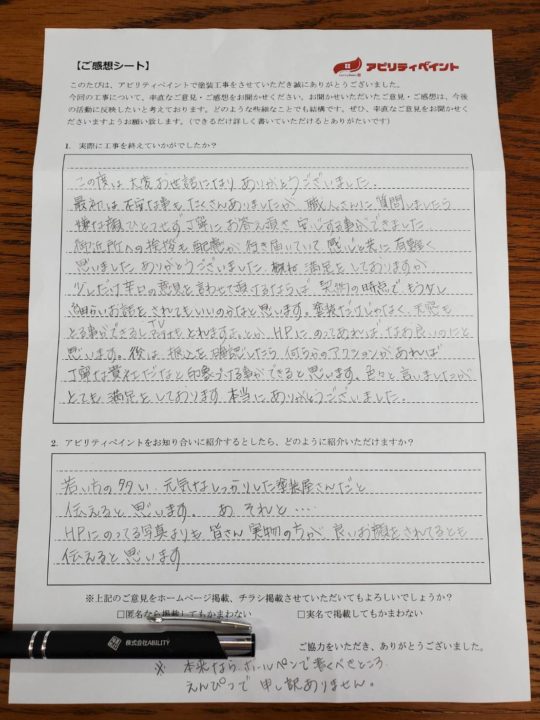 【ご感想シート】
アビリティペイント
このたびは、アビリティペイントで塗装工事をさせていただき誠にありがとうございました。
今回の工事について、率直なご意見・ご感想をお聞かせください。お聞かせいただいたご意見・ご感想は、今後
の活動に反映したいと考えております。どのような些細なことでも結構です。ぜひ、率直なご意見をお聞かせく
ださいますようお願い致します。（できるだけ詳しく書いていただけるとありがたいです）
1. 実際に工事を終えていかがでしたか？
この度は大変お世話になりありがとうございました。
最初は不安な事もたくさんありましたが、職人さんに質問しましたら
嫌な顔ひとつせず丁寧にお答え頂き安心する事ができました。
御近所への挨拶も配慮が行き届いていて感心と共に有難く
思いました。ありがとうございました。概ね満足をしておりますが
少しだけ辛口の意見を言わせて頂けるならば、契約の時点でもう少し
細かいお話をされてもいいのかなと思います。塗装だけじゃなく、
とる事ができるし TV とれますよ。とか、HPにのってあれば、なお良いのにと
思います。後は振込を確認したら何らかのアクションがあれば
丁寧な貴社だなと印象づける事ができると思います。色々と言いましたが
とても満足をしております。本当にありがとうございました。
2. アビリティペイントをお知り合いに紹介するとしたら、どのように紹介いただけますか？
若い方の多い、元気なしっかりした塗装屋さんだと
伝えると思います。 あ それと…
HPにのってる写真よりも皆さん実物の方が良いお顔をされてるとも
伝えると思います
※上記のご意見をホームページ掲載、チラシ掲載させていただいてもよろしいでしょうか？
□匿名なら掲載してもかまわない □実名で掲載してもかまわない
株式会社ABILITY
ご協力をいただき、ありがとうございました。
※ 本来なら ボールペンで書くべきところ
えんぴつで 申し訳ありません。